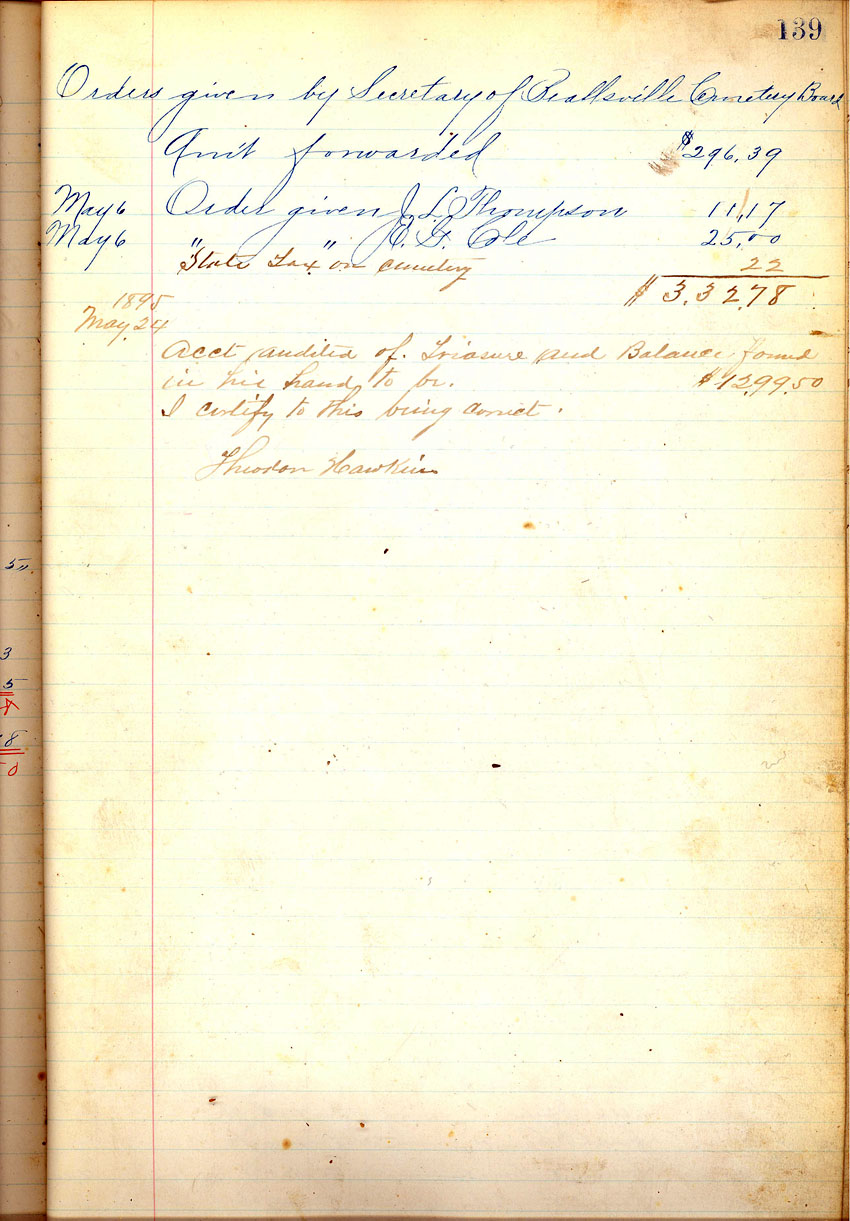 139
Orders given by Secretary of Beallsville Cemetery Board
Am't forwarded $296.39
May 6 Order given J. L. Thompson 11,17
May 6 " " Cole 25,00
State Tax on cemetery 22
$ 3.32.78
1895
May 24
acct audited of. Treasure and Balance found
in his hand to be. $1299.50
I certify to this being correct.
Theodon Hawkins
5"
3
5
8
0